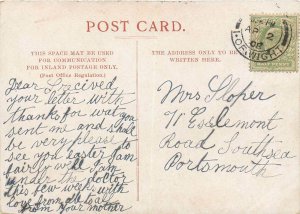 POST CARD.
THIS SPACE MAY BE USED
FOR COMMUNICATION
FOR INLAND POSTAGE ONLY.
(Post Office Regulation.)
THE ADDRESS ONLY TO BE
WRITTEN HERE.
AP 2
08
Dear I recived
your letter with
thanks for wat you
sent me and shall
be very please to
see you Easter I am
fairly well I am
under the doctor
this few weeks with
love from
from your mother
Mrs Sloper
71 Esslemont
Road Southsea
Portsmouth